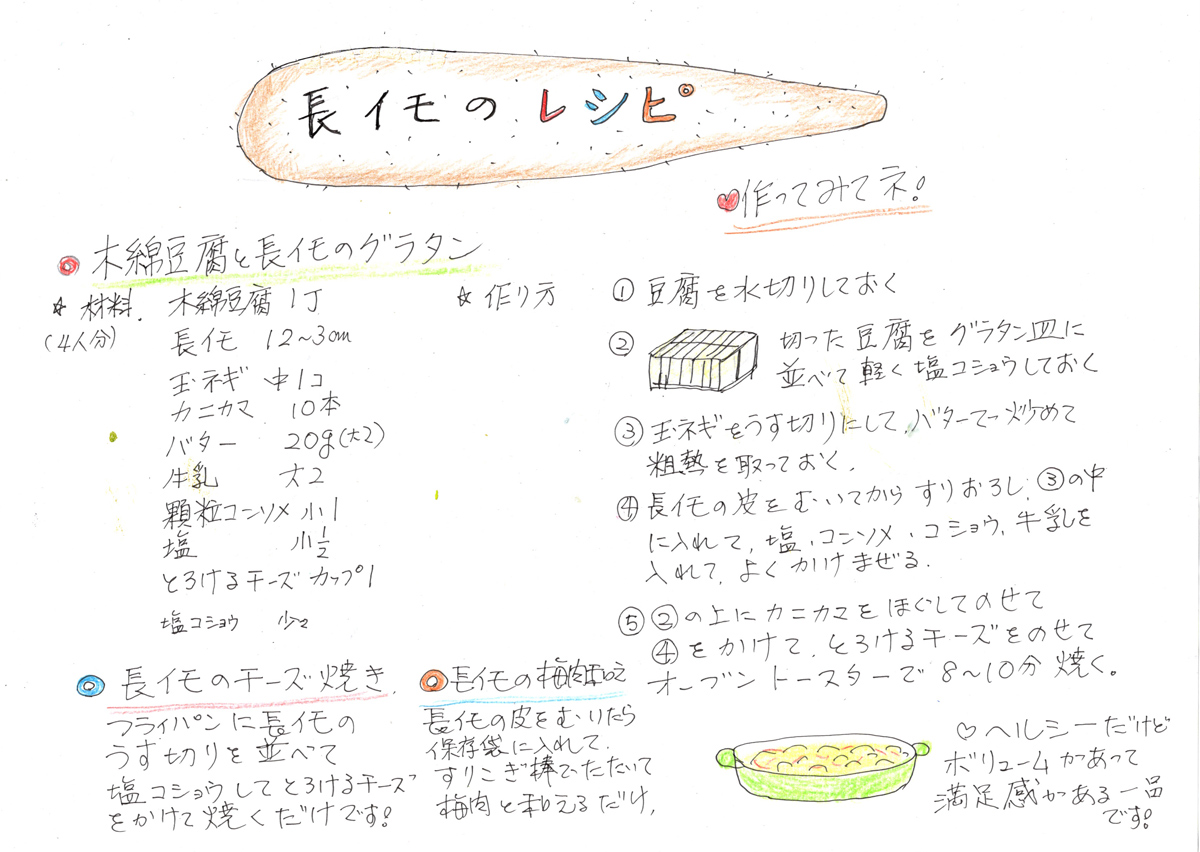 長イモのレシピ
作ってみてネ!
木綿豆腐と長イモのグラタン
☆ 材料. 木綿豆腐 1丁
(4人分)
長イモ 12~3cm
玉ネギ 中1コ
カニカマ 10本
バター 20g(大2)
牛乳 大2
顆粒コンソメ 小1
塩 小1/2
とろけるチーズ カップ1
塩コショウ 少々
☆ 作り方
① 豆腐を水切りしておく
② 切った豆腐をグラタン皿に
並べて軽く塩コショウしておく
③ 玉ネギをうす切りにして、バターで炒めて
粗熱を取っておく.
④ 長イモの皮をむいてからすりおろし、③の中
に入れて、塩、コンソメ、コショウ、牛乳を
入れて、よくかけまぜる.
⑤ ②の上にカニカマをほぐしてのせて
④をかけて、とろけるチーズをのせて
オーブントースターで8~10分焼く。
長イモのチーズ焼き.
フライパンに長イモの
うす切りを並べて
塩コショウしてとろけるチーズ
をかけて焼くだけです!
長イモの梅肉和え
長イモの皮をむいたら
保存袋に入れて.
すりこぎ棒でたたいて
梅肉と和えるだけ、
♡ヘルシーだけど
ボリュームがあって
満足感がある一品
です!